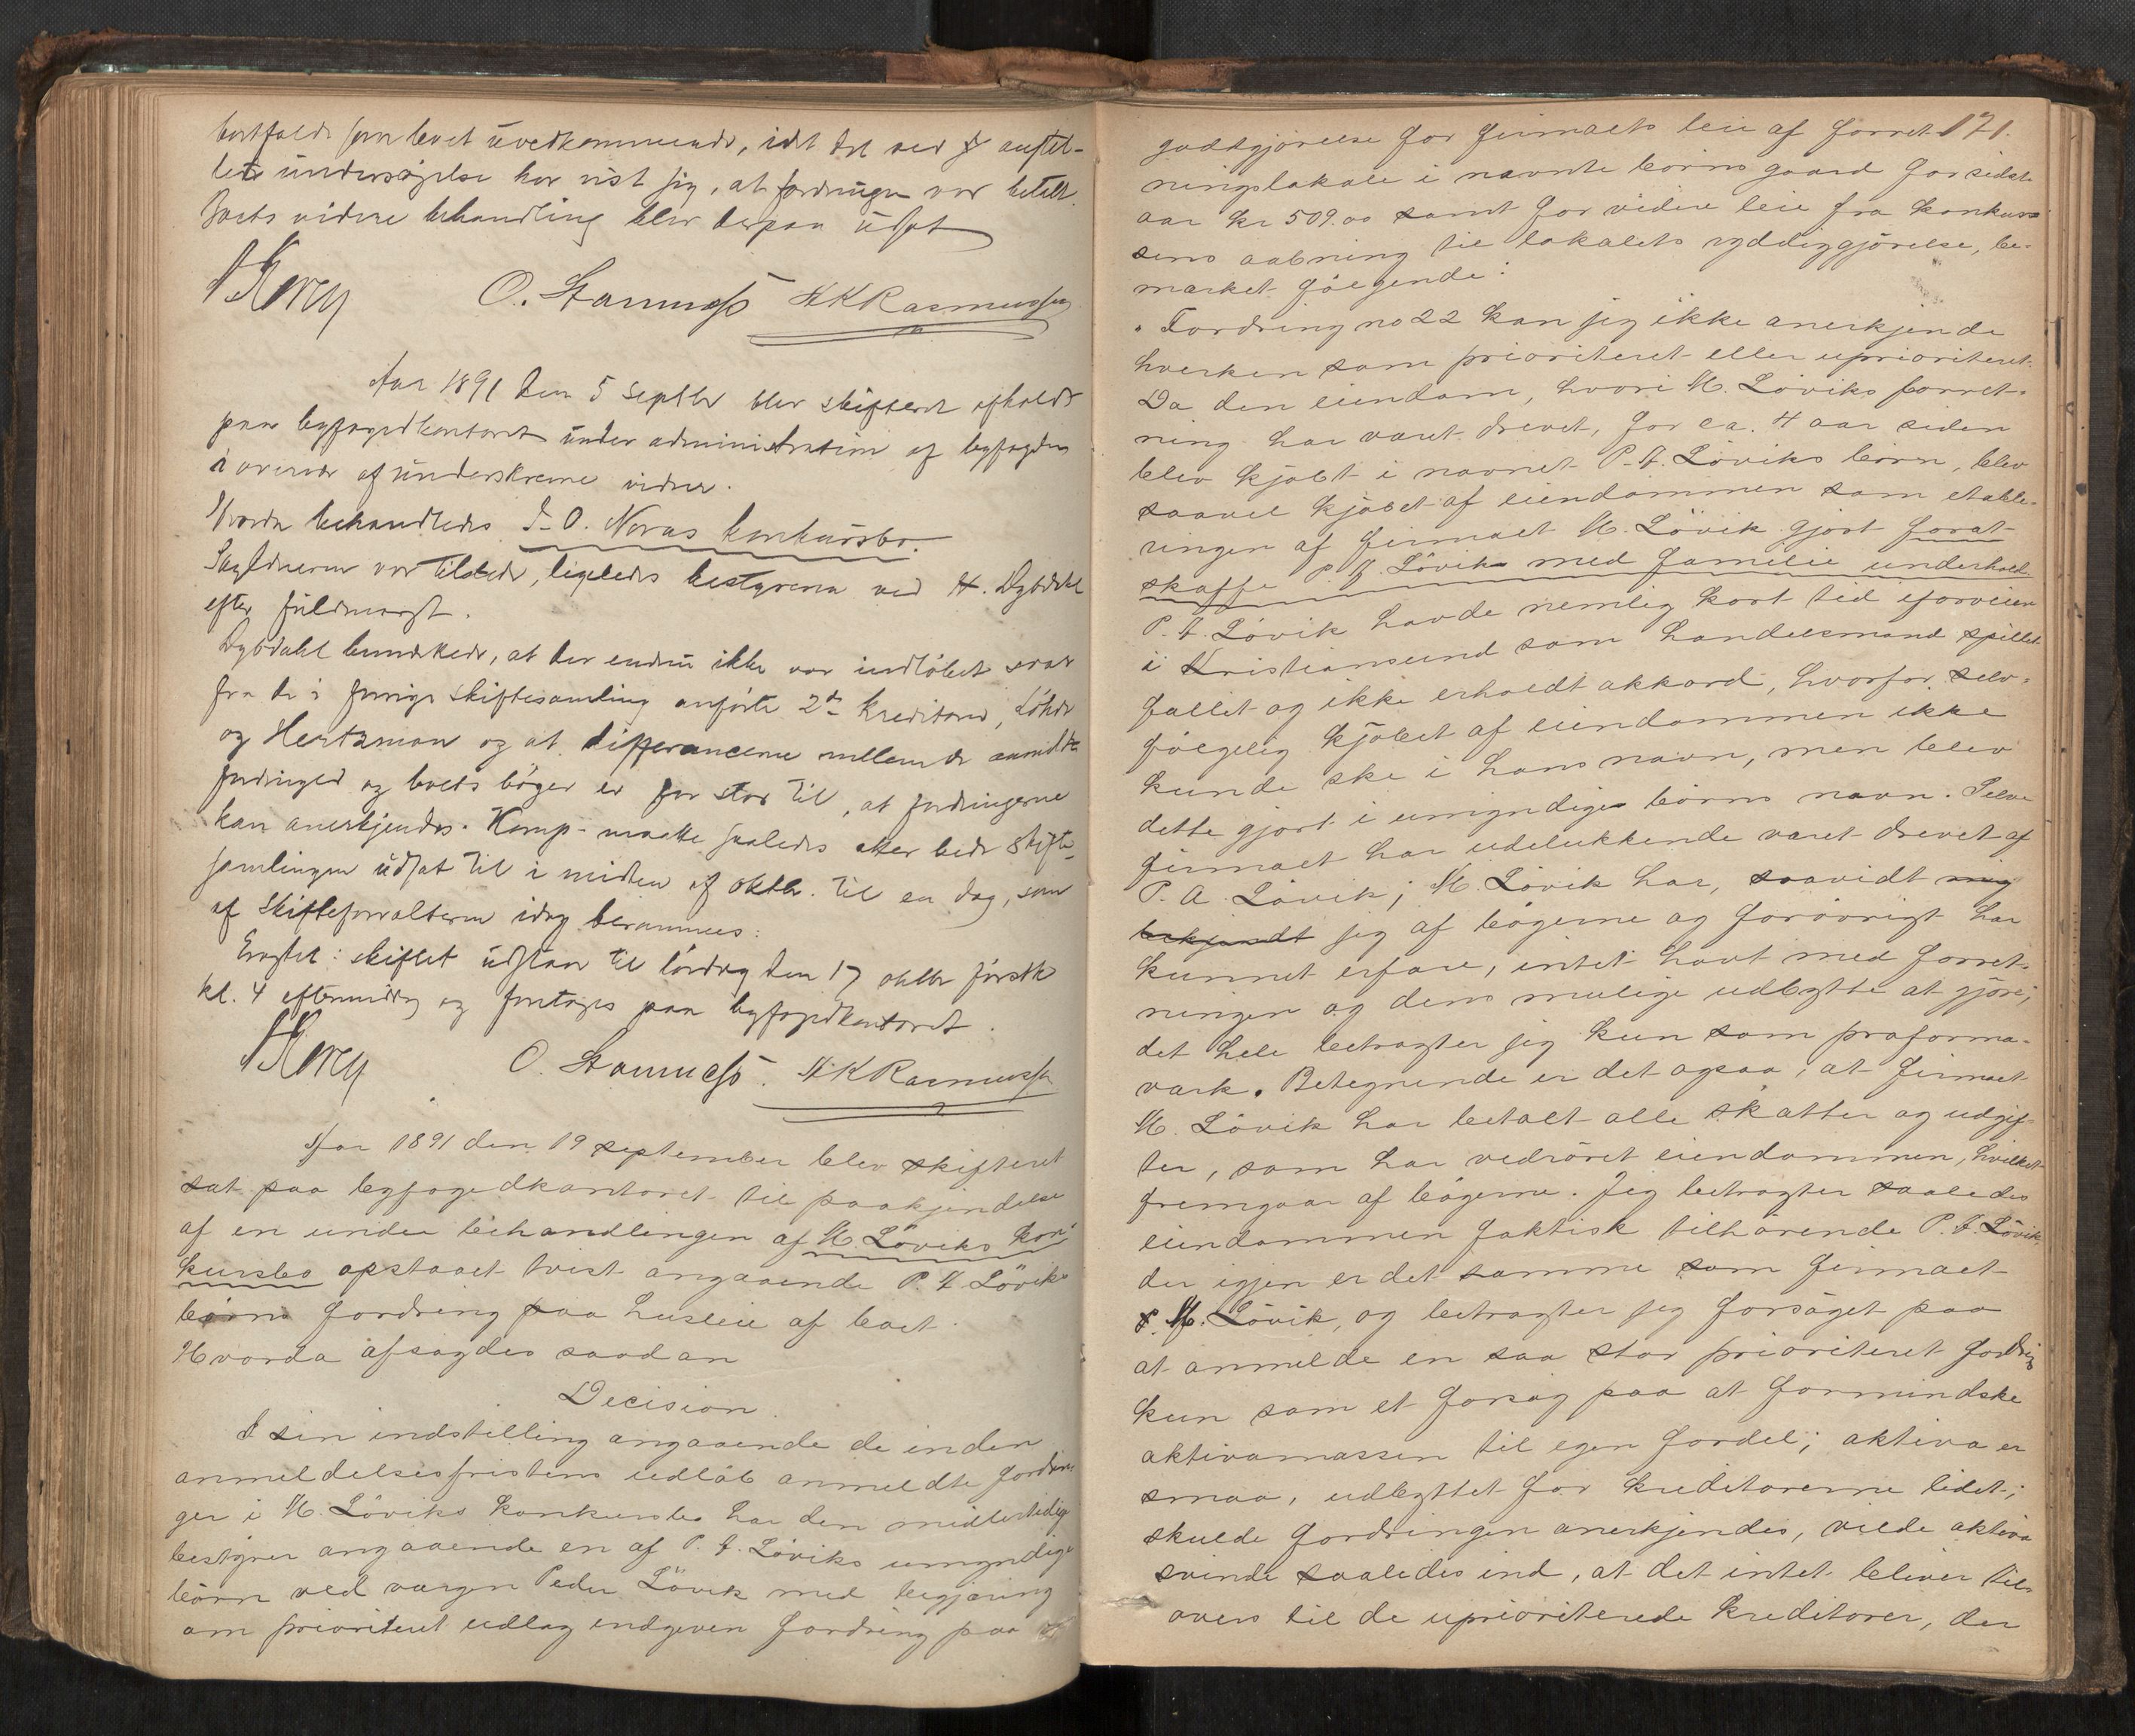 bortfalde som boet uvedkommende, idet det ved anstil-
lede undersøgelse har vist sig, at fordringen var betalt.
Boets videre behandling blev derpaa udsat
O. Stamnesø HKRasmussen
Aar 1891 den 5 septbr blev skifteret afholdt
paa byfogedkontoret under administration af byfogden
i overvær af underskrevne vidner.
Hvorda behandledes J. O. Noras konkursbo.
Skyldneren var tilstede, ligeledes bestyreren ved H. Dybdahl
efter fuldmagt.
Dybdahl bemærkede, at der endnu ikke var indløbet svar
fra de i forrige skiftesamling anførte 2de kreditorer, Löhde
og Hertzman og at differancerne mellem de anmeldte
fordringer og boets bøger er for stor til, at fordringerne
kan anerkjendes. Komp. maatte saaledes atter bede skifte-
samlingen udsat til i midten af oktbr. til en dag, som
af skifteforvalteren idag berammes.
Eragtet: skiftet udstaar til lördag den 17 oktbr förstk
kl. 4 eftermiddag og foretages paa byfogedkontoret.
O. Stamnesø. HKRasmussen
Aar 1891 den 19 september blev skifteret
sat paa byfogedkontoret til paakjendelse
af en under behandlingen af M. Löviks kon-
kursbo opstaaet tvist angaaende P. A. Löviks
börns fordring paa husleie af boet.
Hvorda afsagdes saadan
Decision.
I sin indstilling angaaende de inden
anmeldelsesfristens udlöb anmeldte fordrin-
ger i M. Löviks konkursbo har den midlertidige
bestyrer angaaende en af P. A. Löviks umyndige
börn ved værgen Peder Lövik med begjæring
om prioriteret udlæg indgiven fordring paa
171.
godtgjörelse for firmaets leie af forret-
ningslokale i nævnte börns gaard for sidste
aar kr 509.00 samt for videre leie fra konkur-
sens aabning til lokalets ryddiggjörelse, be-
mærket fölgende:
"Fordring no 22 kan jeg ikke anerkjende
hverken som prioriteret eller uprioriteret.
Da den eiendom, hvori M. Löviks forret-
ning har været drevet, for ca. 4 aar siden
blev kjöbt i navnet P. A. Löviks börn, blev
saavel kjöbet af eiendommen som etable-
ringen af firmaet M. Lövik gjort for at
skaffe P. A. Lövik med familie underhold.
P. A. Lövik havde nemlig kort tid iforveien
i Kristiansund som handelsmand spillet
fallit og ikke erholdt akkord, hvorfor selv-
fölgelig kjöbet af eiendommen ikke
kunde ske i hans navn, men blev
dette gjort i umyndige börns navn. Selve
firmaet har udelukkende været drevet af
P. A. Lövik; M. Lövik har, saavidt mig
bekjendt jeg af bögerne og forövrigt har
kunnet erfare, intet havt med forret-
ningen og dens mulige udbytte at gjöre;
det hele betragter jeg kun som proforma-
værk. Betegnende er det ogsaa, at firmaet
M. Lövik har betalt alle skatter og udgif-
ter, som har vedröret eiendommen, hvilket
fremgaar af bögerne. Jeg betragter saaledes
eiendommen faktisk tilhörende P. A. Lövik,
der igjen er det samme som firmaet
M. Lövik, og betragter jeg forsöget paa
at anmelde en saa stor prioriteret fordring
kun som et forsög paa at formindske
aktivamassen til egen fordel; aktiva er
smaa, udbyttet for kreditorerne lidet;
skulde fordringen anerkjendes, vilde aktiva
svinde saaledes ind, at det intet bliver til-
overs til de uprioriterede kreditorer, der